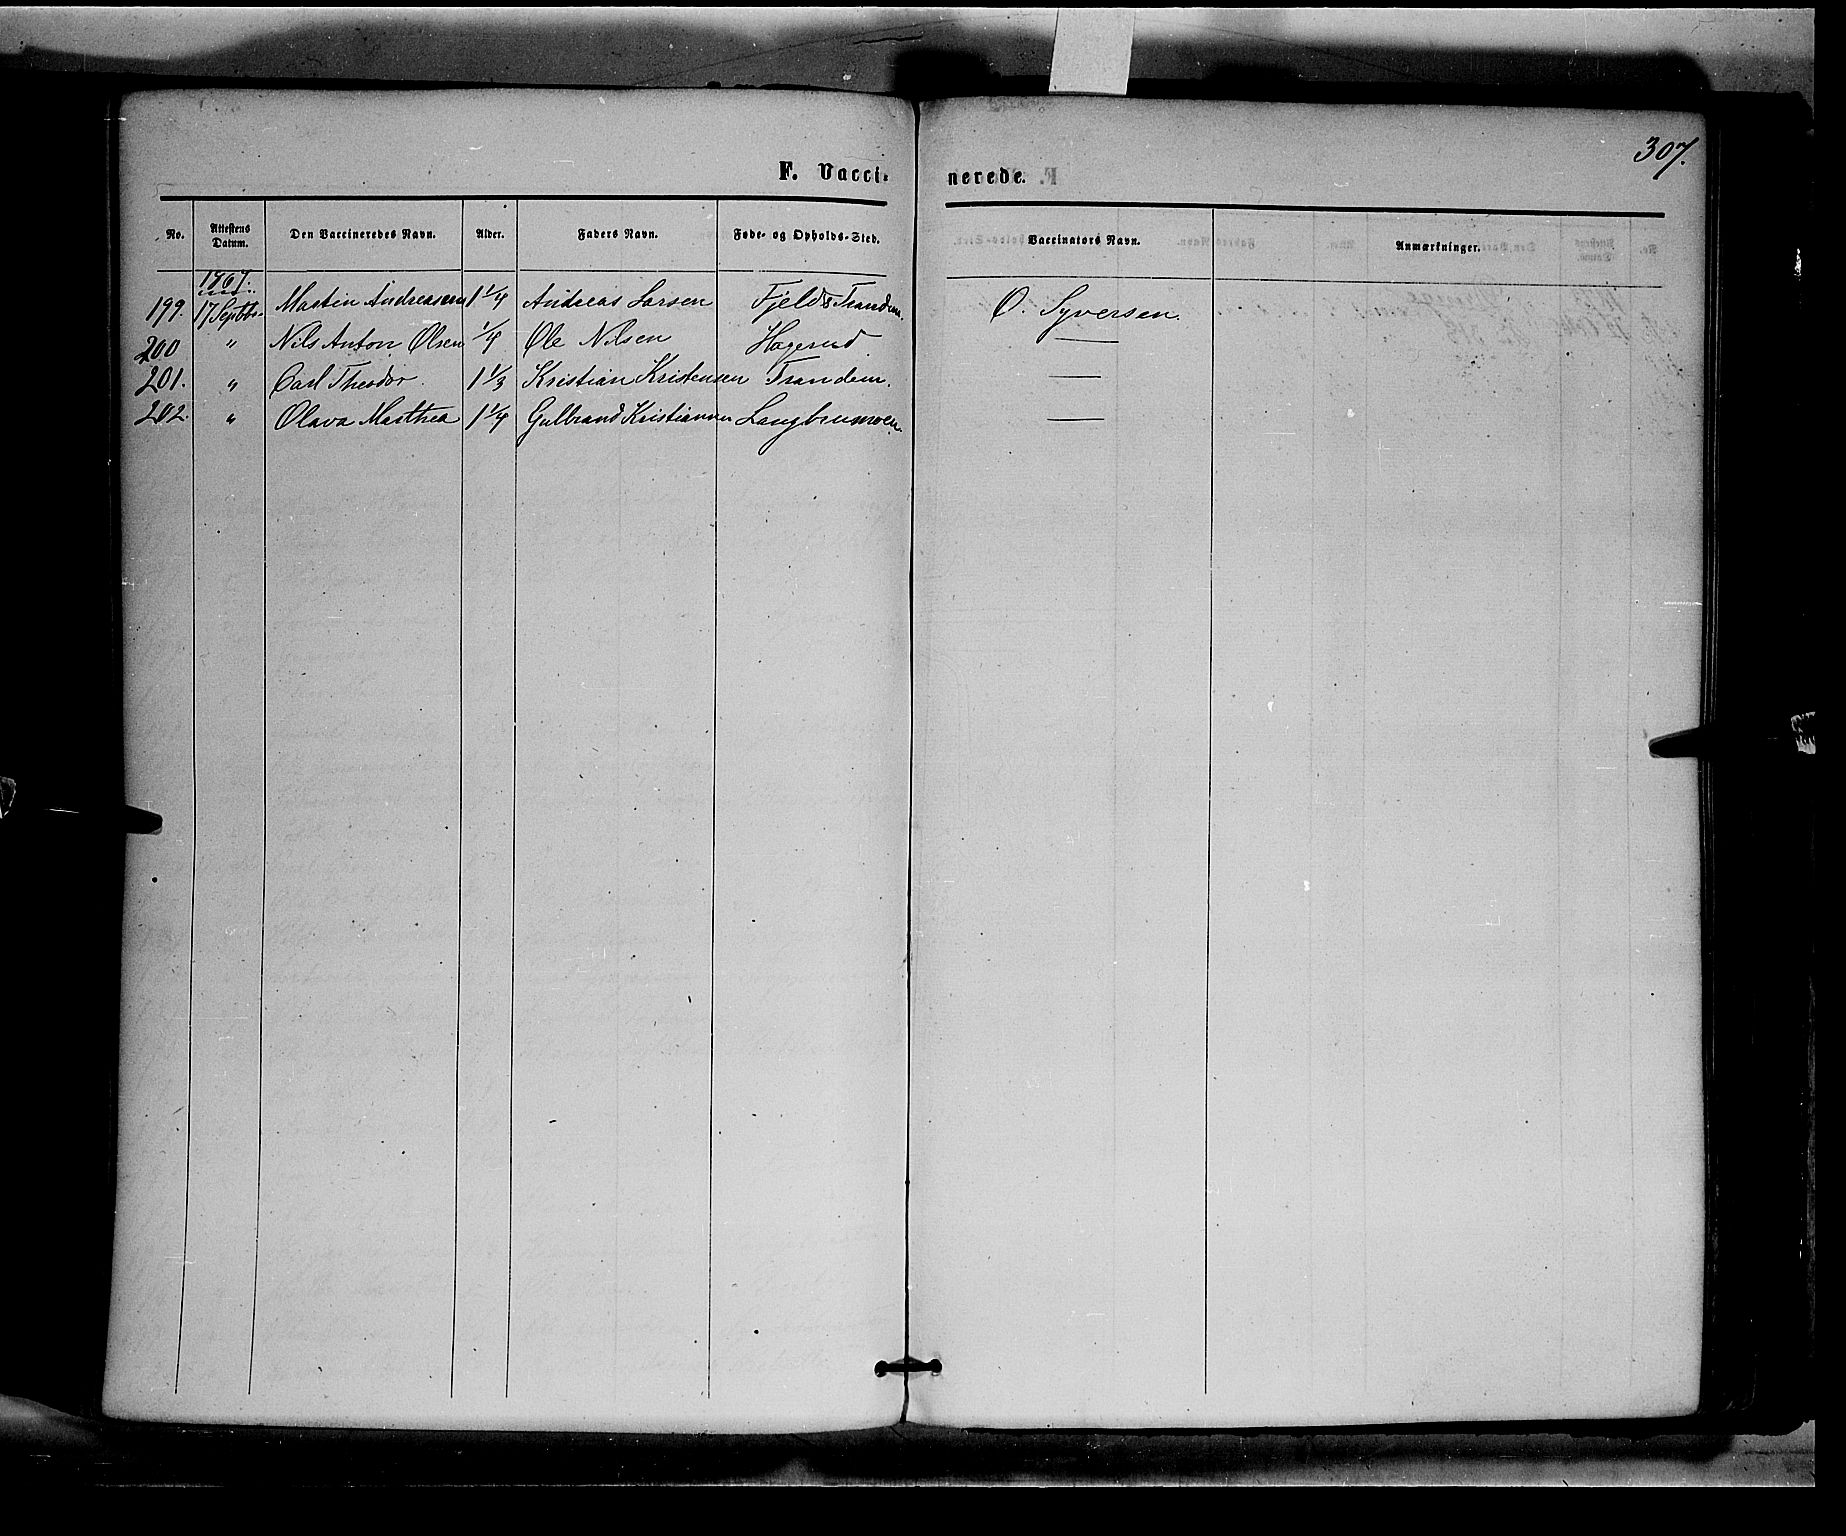 307.
F. Vacci- nerede.
No. Attestens Datum. Den Vaccineredes Navn. Alder. Faders Navn. Føde- og Opholds-Sted. Vaccinators Navn. Anmærkninger.
1867.
199. 17 Septbr. Martin Andreasen 1 1/4 Andreas Larsen Fjeld Trandem. O. Syversen.
200 " Nils Anton Olsen 1/4 Ole Nilsen Hagerud. —
201. " Carl Theodor. 1 1/3 Kristian Kristensen Trandem. —
202. " Olava Marthea 1 1/4 Gulbrand Kristiansen Langbrusmoen. —